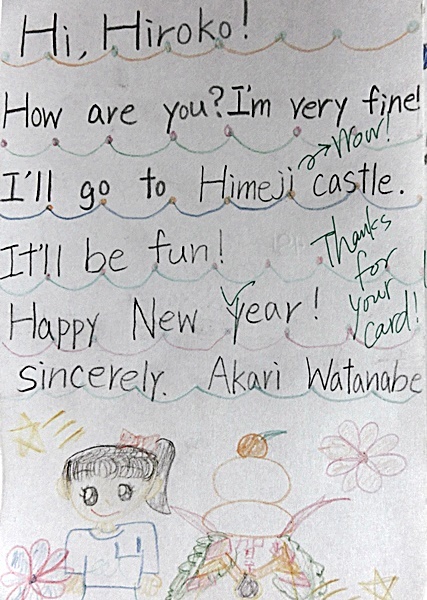 Hi, Hiroko!
How are you? I'm very fine!
→Wow!
I'll go to Himeji castle.
It'll be fun!
Thanks
for
your
card!
Happy New Year!
sincerely. Akari Watanabe